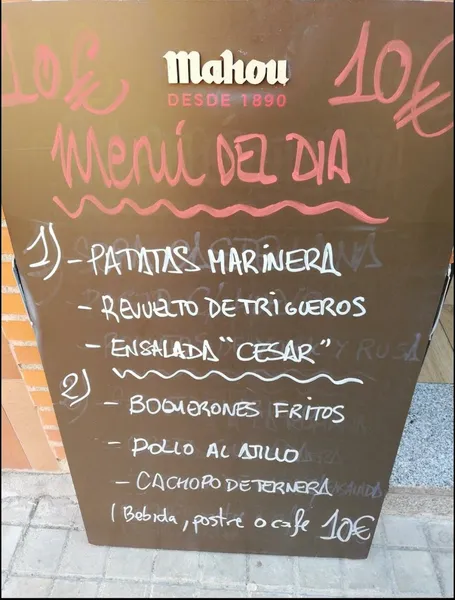 10€ Mahou 10€
DESDE 1890
Menú DEL DIA
1) - PATATAS MARINERA
- REVUELTO DE TRIGUEROS
- ENSALADA "CESAR"
2) - BOQUERONES FRITOS
- POLLO AL AJILLO
- CACHOPO DE TERNERA
(Bebida, postre o cafe 10€